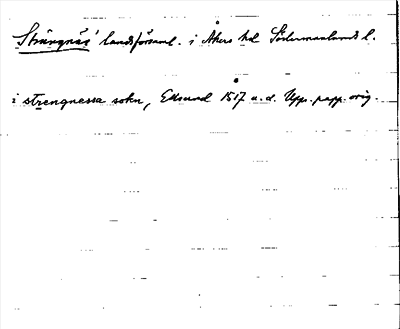 Strängnäs' landsförsaml. i Åkers hd Södermanlands l.
i strengnessa sokn, Edsund 1517 u.d. Upps. papp. orig.